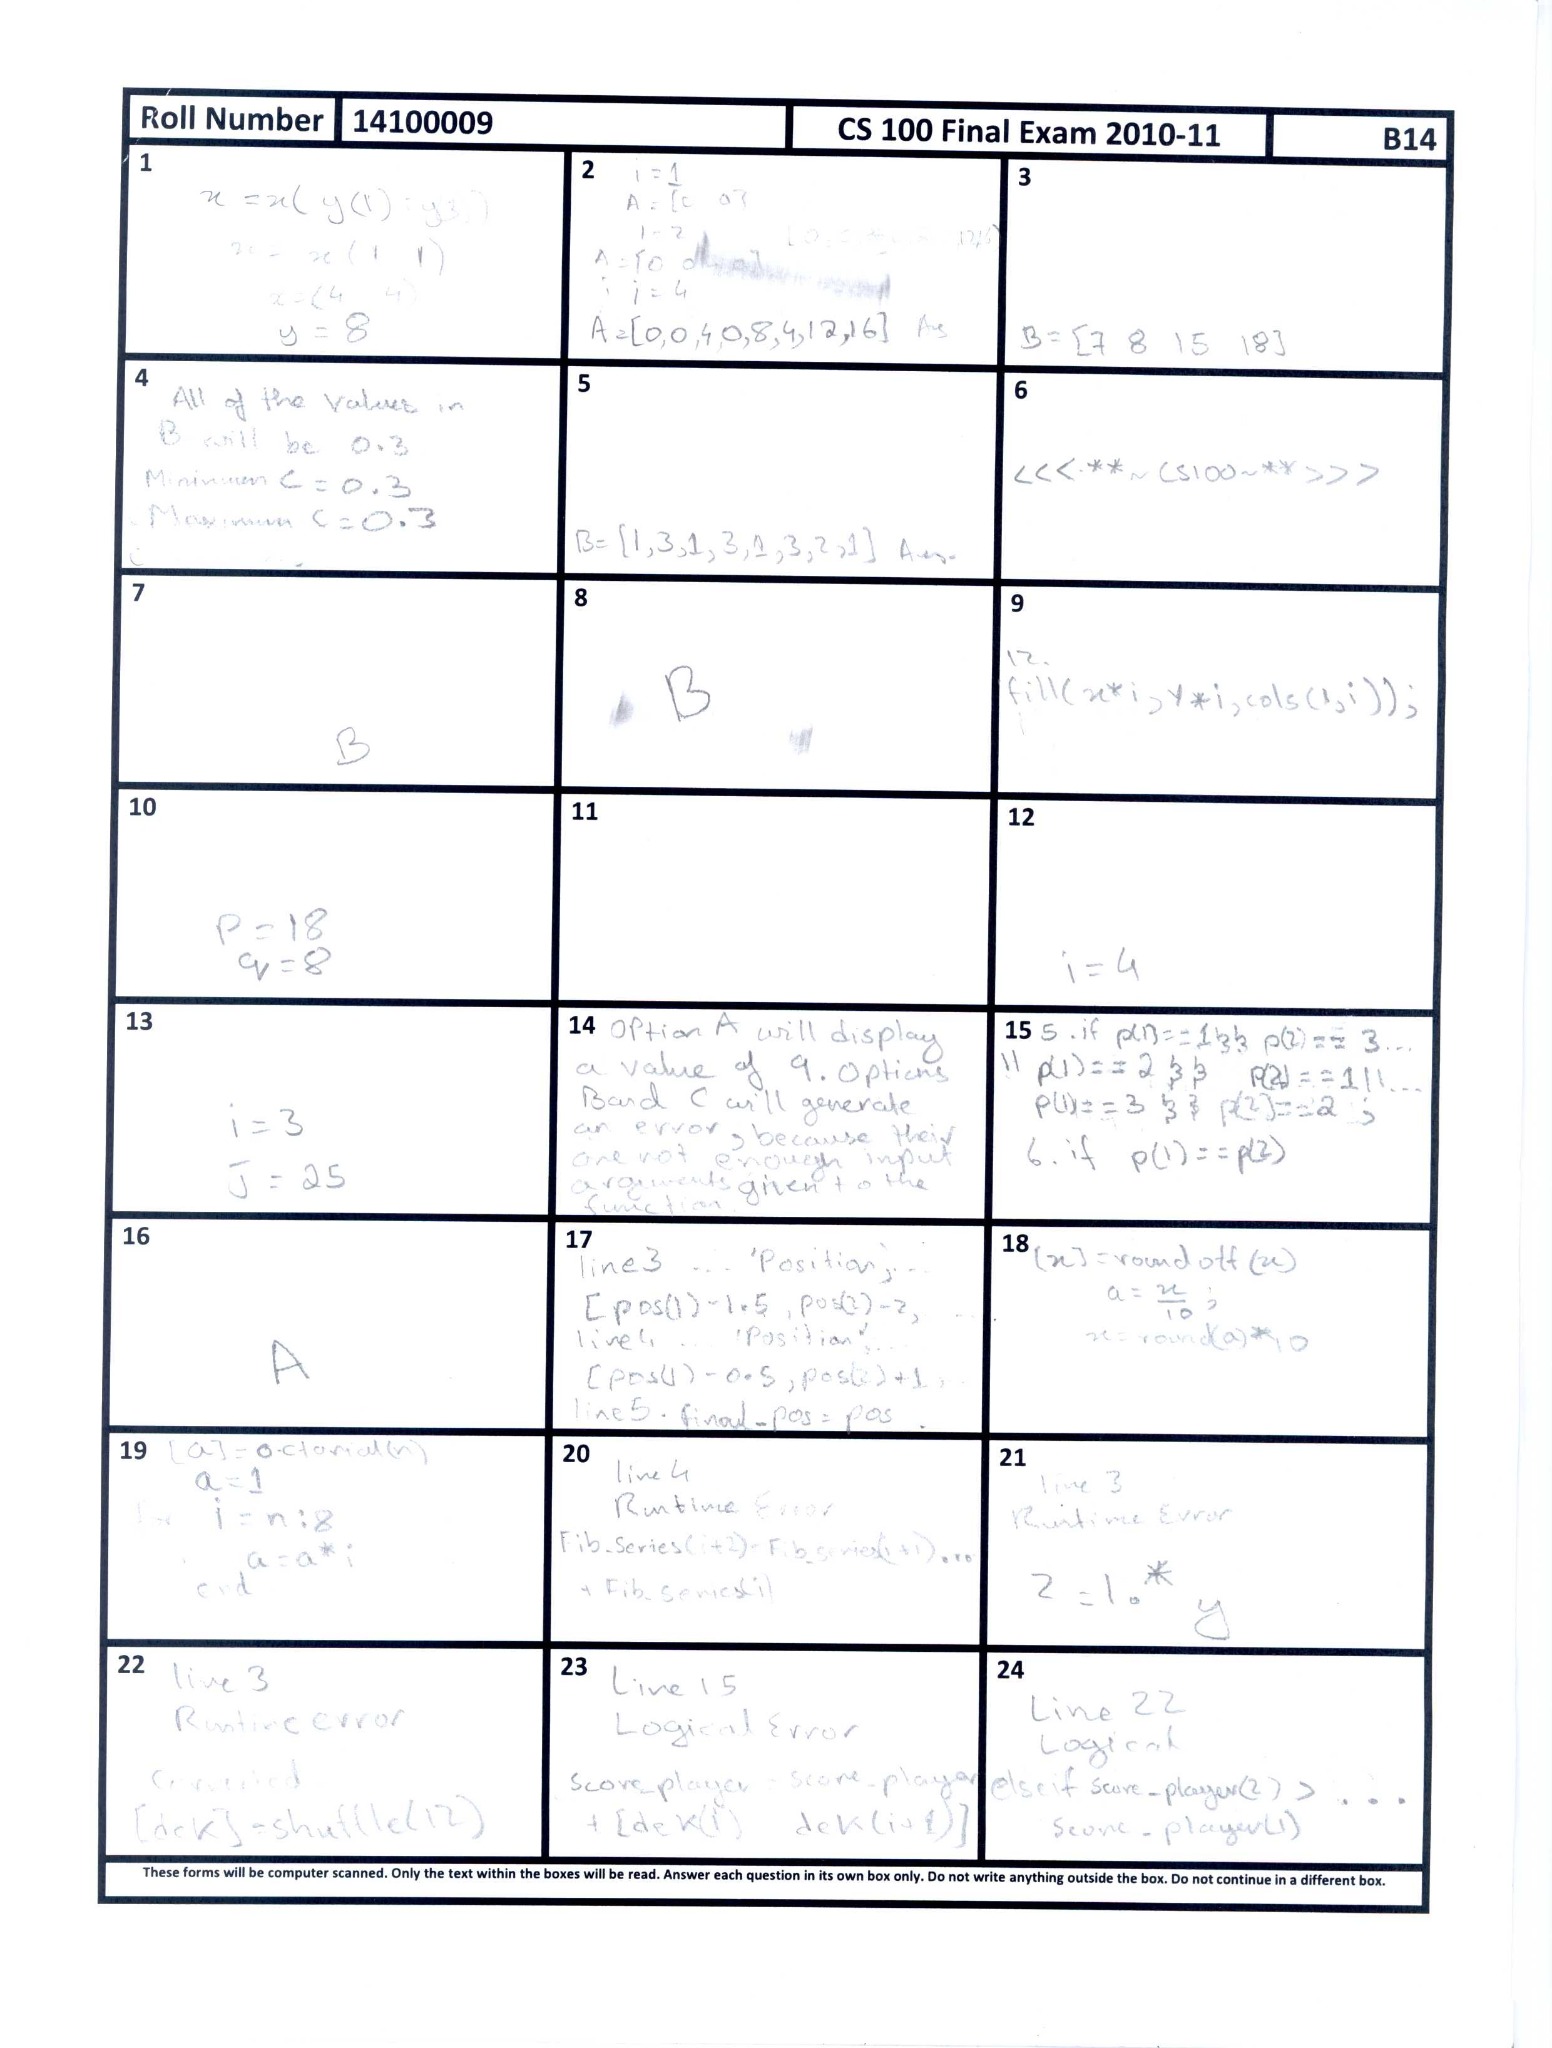 Roll Number 14100009 CS 100 Final Exam 2010-11 B14
1
x = x( y(1) : y3))
x = x(1 1)
x = (4 4)
y = 8
2 i = 1
A = [0 0]
A = [0 0
i = 4
A = [0,0,4,0,8,4,12,16] Ans
3
B = [7 8 15 18]
4
All of the values in
B will be 0.3
Minimum C = 0.3
Maximum C = 0.3
5
B = [1,3,1,3,1,3,2,1] Ans.
6
<<<**~CS100~**>>>
7
B
8
B
9
12.
fill(x*i,Y*i,cols(1,i));
10
P = 18
q = 8
11
12
i = 4
13
i = 3
J = 25
14 Option A will display
a value of 9. Options
B and C will generate
an error, because their
are not enough input
arguments given to the
function.
15 5. if p(1)==1&& p(2)==3...
|| p(1)==2 && p(2)==1||...
p(1)==3 && p(2)==2;
6. if p(1)==p(2)
16
A
17
line3 ... 'Position',...
[pos(1)-1.5, pos(2)-2, ...
line4 ... 'Position',...
[pos(1)-0.5, pos(2)+1, ..
line5. final_pos = pos.
18 [x] = roundoff(x)
a = x/10;
x = round(a)*10
19 [a] = octorial(n)
a = 1
for i = n:8
a = a*i
end
20
line 4
Runtime Error
Fib_Series(i+2)=Fib_series(i+1)...
+ Fib_series(i)
21
line 3
Runtime Error
2 = 1.* y
22 line 3
Runtime error
Corrected
[dek]=shuffle(12)
23 Line 15
Logical Error
Score_player = score_player
+ [dek(i) dek(i+1)]
24
Line 22
Logical
elseif score_player(2) > ...
score_player(1)
These forms will be computer scanned. Only the text within the boxes will be read. Answer each question in its own box only. Do not write anything outside the box. Do not continue in a different box.